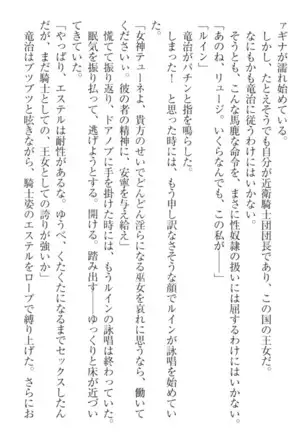 ァギナが濡れ始めている。
　しかし、たとえそうでも自分が近衛騎士団団長であり、この国の王女だ。
なにもかも竜治に従うわけにはいかない。
　そうとも、こんな馬鹿な命令を、まさに性奴隷の扱いには屈するわけにはいかない。
「あのね、リュージ。いくらなんでも、この私が――」
　竜治がパチンと指を鳴らした。
「ルイン」
　しまった！　と思った時には、もう申し訳なさそうな顔でルインが詠唱を始めてい
た。
「女神テューネよ、貴方のせいでどんどん淫らになる巫女を哀れに思うなら、働いて
くださいぃ。彼の者の精神に、安寧を与え給え」
　慌てて振り返り、ドアノブに手を掛けた時には、もうルインの詠唱は終わっていた。
　眠気を振り払って、逃げようとする。開ける。踏み出す――ゆっくりと床が近づい
てきていた。
「やっぱり、エステルは耐性があるな。ゆうべ、くたくたになるまでセックスしたん
だが、まだ騎士としての、王女としての誇りが強いか」
　竜治はブツブツと呟きながら、騎士姿のエステルをロープで縛り上げた。さらにお